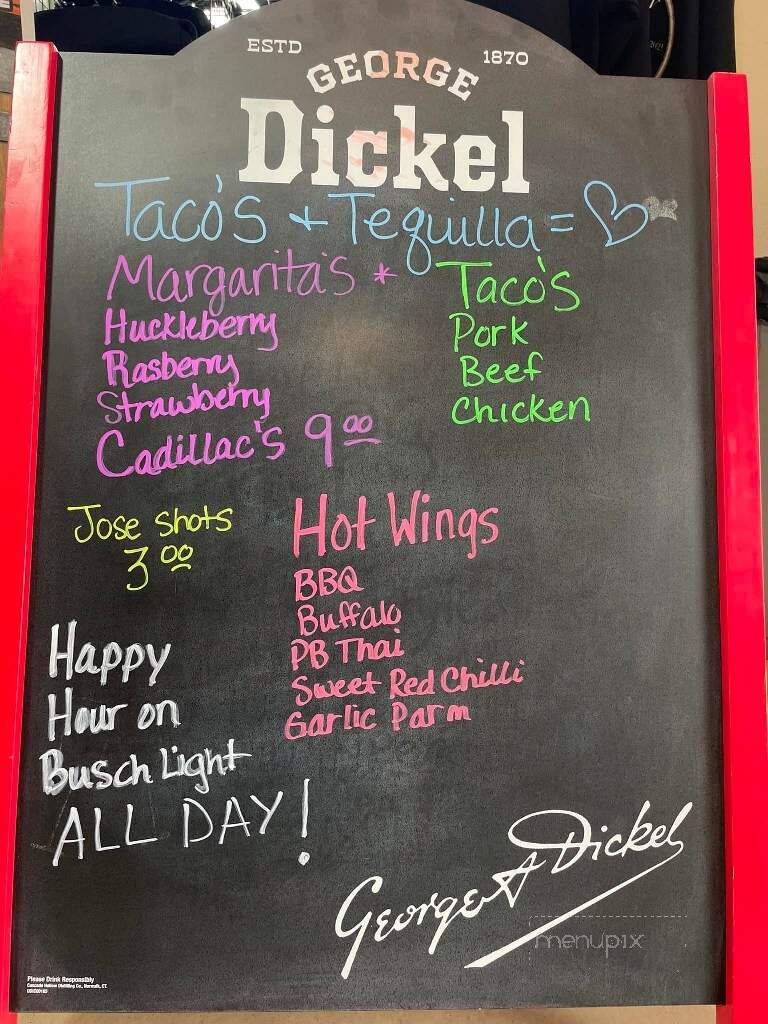 ESTD 1870
GEORGE
Dickel
Taco's + Tequilla = ♡
Margarita's *
Huckleberry
Rasberry
Strawberry
Cadillac's 9.00
Taco's
Pork
Beef
Chicken
Jose shots
3.00
Hot Wings
BBQ
Buffalo
PB Thai
Sweet Red Chilli
Garlic Parm
Happy
Hour on
Busch Light
ALL DAY!
George A Dickel
menupix
Please Drink Responsibly
Cascade Hollow Distilling Co., Norwalk, CT.